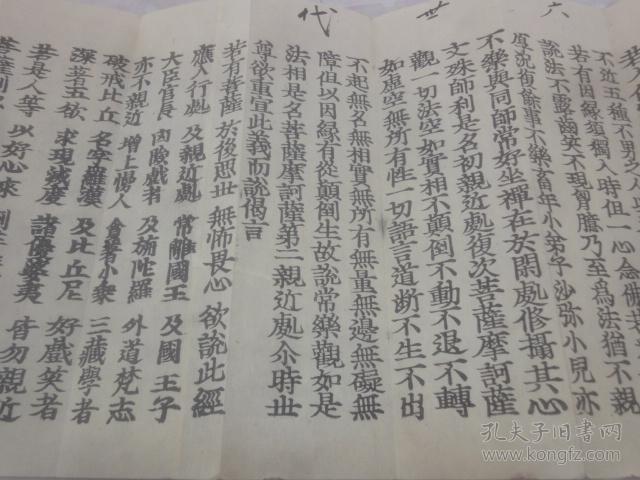 六 世 代
不近五種不男之人以
若有因緣須獨入時但一心念佛若
說法不露齒笑不現胷臆乃至爲法猶不親
厚況復餘事不樂畜年小弟子沙弥小兒亦
不樂與同師常好坐禪在於閑處修攝其心
文殊師利是名初親近處復次菩薩摩訶薩
觀一切法空如實相不顛倒不動不退不轉
如虛空無所有性一切語言道断不生不出
不起無名無相實無所有無量無邊無礙無
障但以因緣有從顛倒生故說常樂觀如是
法相是名菩薩摩訶薩第二親近處尒時世
尊欲重宣此義而說偈言
若有菩薩 於後惡世 無怖畏心 欲說此經
應入行處 及親近處 常離國王 及國王子
大臣官長 㐫險戲者 及旃陀羅 外道梵志
亦不親近 增上慢人 貪著小乘 三藏學者
破戒比丘 名字羅漢 及比丘尼 好戲笑者
深著五欲 求現滅度 諸優婆夷 皆勿親近
若是人等 以好心來
孔夫子旧书网
www.kongfz.com